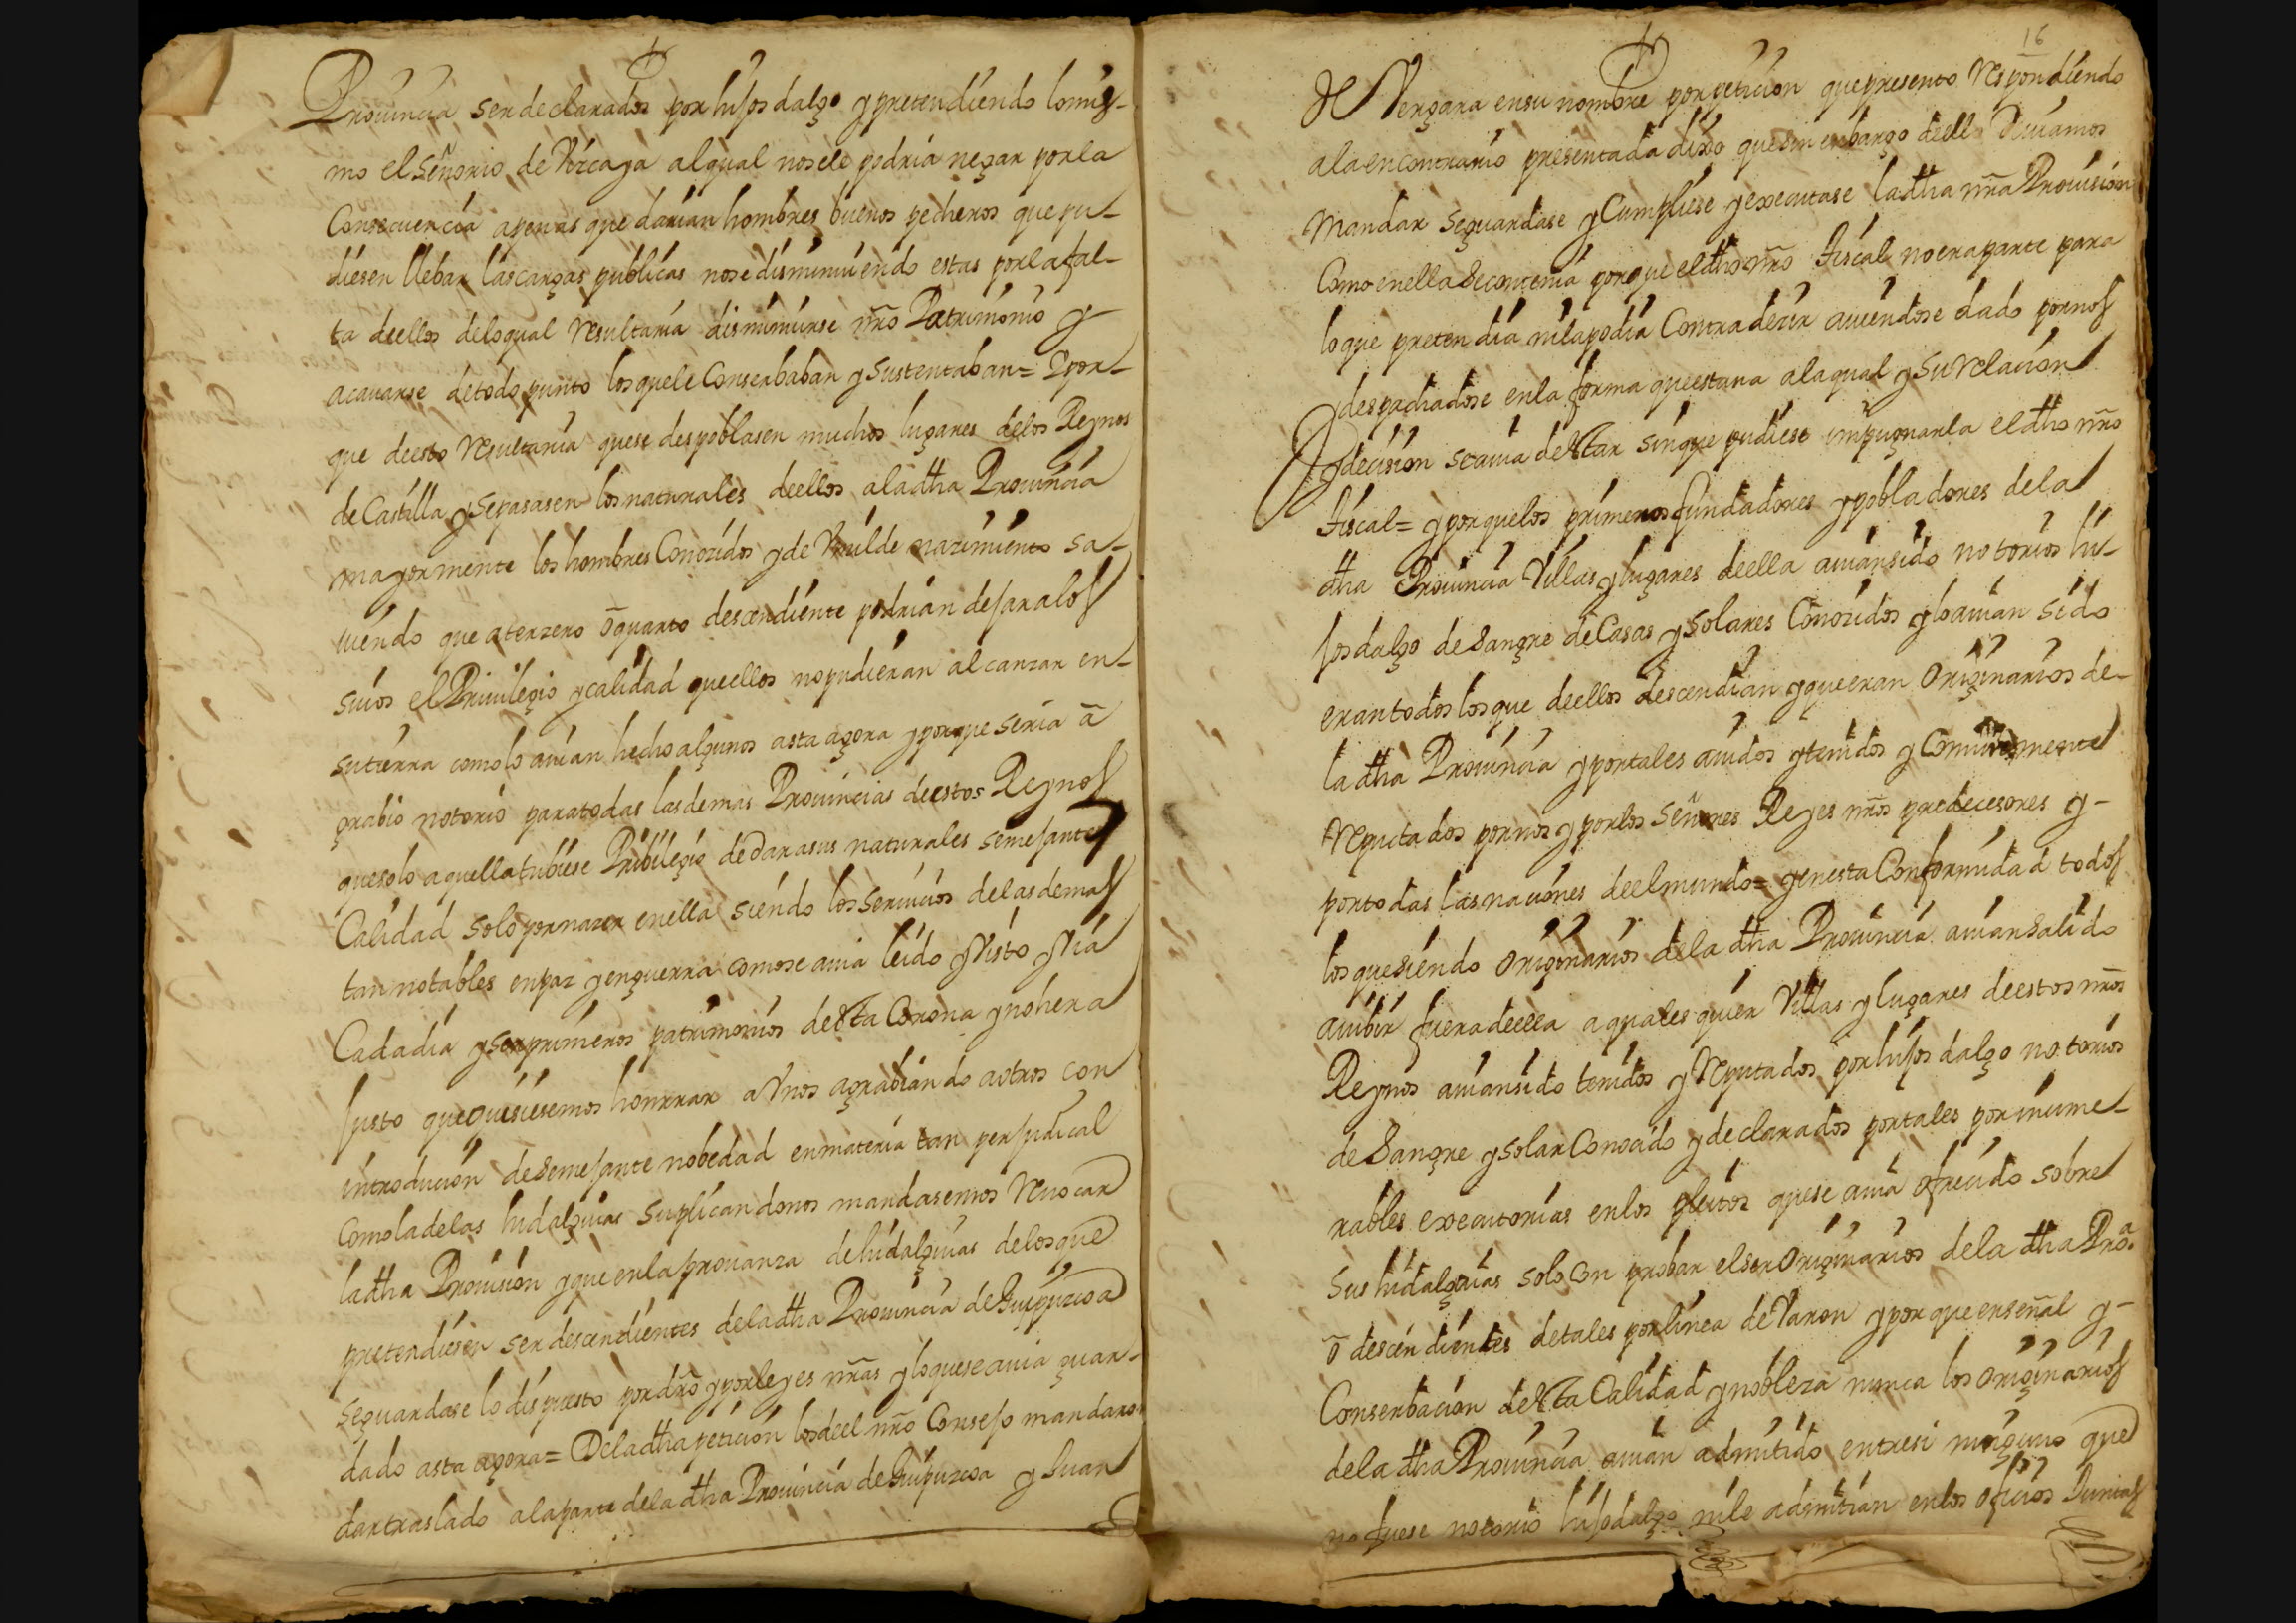 Prouincia ser declarados por hijos dalgo y pretendiendo lo mis-
mo el señorio de Vizcaya al qual no se le podria negar por la
Consecuencia apenas que darian hombres buenos pecheros que pu-
diesen llebar las cargas publicas no se disminuiendo estas por la fal-
ta de ellos de lo qual resultaria disminuirse nr̃o Patrimonio y
acauarse de todo punto los que le Conserbaban y sustentaban = Y por-
que de esto resultaria que se despoblasen muchos lugares de los Reynos
de Castilla y se pasasen los naturales de ellos a la dha Prouincia
mayormente los hombres Conozidos y de Vmilde nazimiento sa-
uiendo que a terzero õ quarto descendiente podrian dejar a los
suios el Priuilegio y calidad que ellos no pudieran alcanzar en
su tierra como lo auian hecho algunos asta agora y porque seria ã
grabio notorio para todas las demas Prouincias de estos Reynos
que solo aquella tubiese Pribilegio de dar a sus naturales semejante
Calidad solo por nazer en ella siendo los seruicios de las demas
tan notables en paz y en guerra como se auia leido y Visto y Via
Cada dia y ser primeros patrimonios de esta Corona y no hera
justo que quisiesemos honrrar a Vnos agrabiando a otros con
introducion de semejante nobedad en materia tan perjudicial
como la de las hidalguias suplicandonos mandasemos reuocar
la dha Prouision y que en la prouanza de hidalguias de los que
pretendiesen ser descendientes de la dha Prouincia de Guipuzcoa
se guardase lo dispuesto por dr̃o y por leyes nr̃as y lo que se auia guar-
dado asta agora = De la dha peticion los de el nr̃o Consejo mandaron
dar traslado a la parte de la dha Prouincia de Guipuzcoa y Juan
16
de Vergara en su nombre por peticion que presento respondiendo
a la en contrario presentada dixo que sin embargo de ella deuiamos
Mandar se guardase y Cumpliese y executase la dha nr̃a Prouision
Como en ella se contenia porque el dho nr̃o fiscal no era parte para
lo que pretendia ni la podia Contradezir auiendose dado por nos
y despachadose en la forma que estaua a la qual y su relacion
y decision se auia de estar sin que pudiese impugnarla el dho nr̃o
fiscal = y porque los primeros fundadores y pobladores de la
dha Prouincia Villas y lugares de ella auian sido notorios hi-
josdalgo de sangre de Casas y solares Conozidos y lo auian sido
eran todos los que de ellos descendian y que eran Originarios de
la dha Prouincia y por tales auidos y tenidos y Comunmente
reputados por nos y por los señores Reyes nr̃os predecesores y -
por todas las naciones de el mundo = y en esta Conformidad todos
los que siendo Originarios de la dha Prouincia auian salido
a uibir fuera de ella a quales quier Villas y lugares de estos nr̃os
Reynos auian sido tenidos y reputados por hijos dalgo notorios
de Sangre y solar Conocido y declarados por tales por inume-
rables executorias en los pleitos que se auia ofrecido sobre
sus hidalguias solo con probar el ser Originarios de la dha Pro.ª
õ descendientes de tales por linea de Varon y por que en señal y -
Conserbacion de esta Calidad y nobleza nunca los originarios
de la dha Prouincia auian admitido entre si ninguno que
no fuese notorio hijodalgo ni le admitian en los oficios Junias